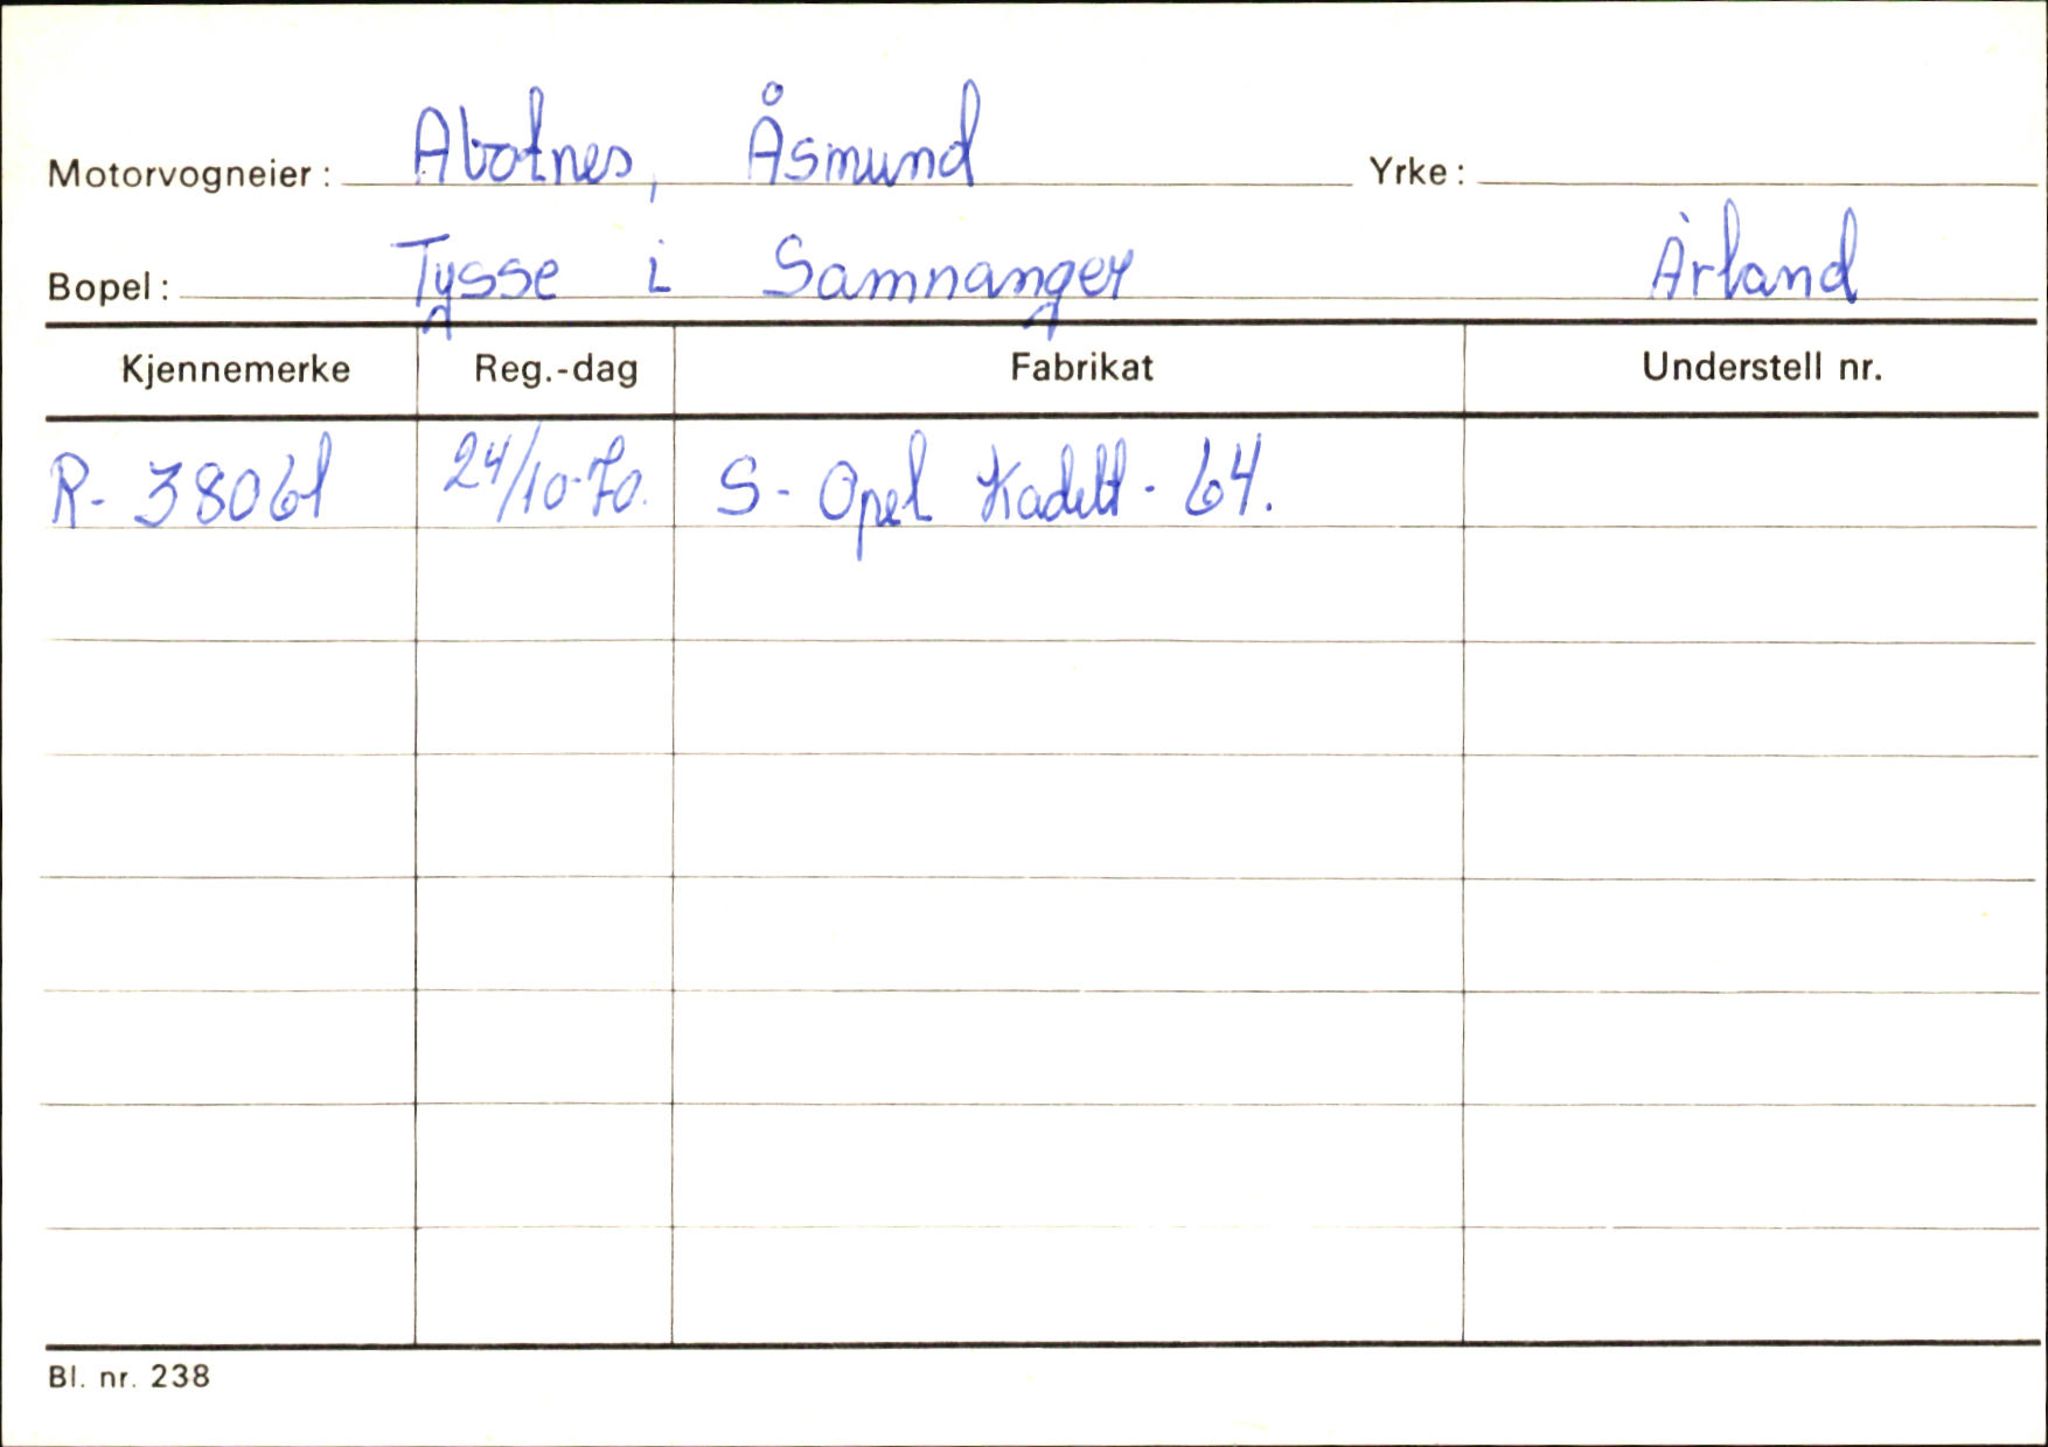 Motorvogneier: Abotnes, Åsmund Yrke:
Bopel: Tysse i Samnanger Årland
Kjennemerke Reg.-dag Fabrikat Understell nr.
R- 38061 24/10-70. S- Opel Kadett - 64.
Bl. nr. 238